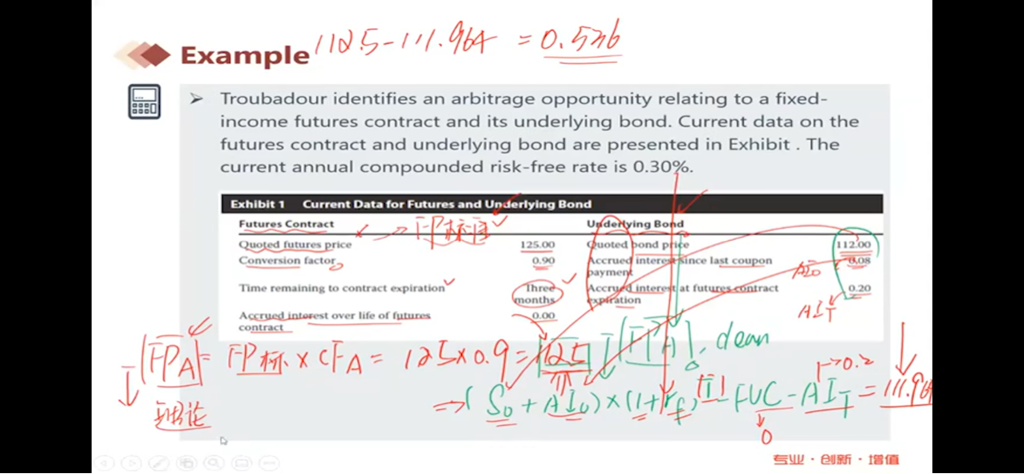 Example 112.5-111.964 = 0.536
Troubadour identifies an arbitrage opportunity relating to a fixed-
income futures contract and its underlying bond. Current data on the
futures contract and underlying bond are presented in Exhibit . The
current annual compounded risk-free rate is 0.30%.
Exhibit 1 Current Data for Futures and Underlying Bond
Futures Contract
Underlying Bond
Quoted futures price 125.00 Quoted bond price 112.00
Conversion factor 0.90 Accrued interest since last coupon payment 0.08
Time remaining to contract expiration Three months Accrued interest at futures contract expiration 0.20
Accrued interest over life of futures contract 0.00
AI0
AIT
FPA = FP标 × CFA = 125×0.9 = 112.5
clean
理论
⇒ (S0 + AI0) × (1+rf)T - FVC - AIT = 111.964
→0.2
0
专业·创新·增值